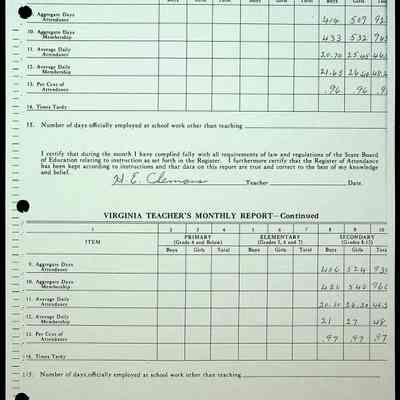 Boys Girls Total Boys Girls Total Boys Girls
9. Aggregate Days Attendance 414 507 92
10. Aggregate Days Membership 433 532
11. Average Daily Attendance 20.70
12. Average Daily Membership 21.65
13. Per Cent of Attendance .96 .96
14. Times Tardy
15. Number of days officially employed at school work other than teaching
I certify that during the month I have complied fully with all requirements of law and regulations of the State Board
of Education relating to instruction as set forth in the Register. I furthermore certify that the Register of Attendance
has been kept according to instructions and that data on this report are true and correct to the best of my knowledge
and belief.
H. E. Clemons Teacher Date.
VIRGINIA TEACHER'S MONTHLY REPORT—Continued
1 2 3 4 5 6 7 8 9 10
ITEM PRIMARY (Grades 4 and Below) ELEMENTARY (Grades 5, 6 and 7) SECONDARY (Grades 8-12)
Boys Girls Total Boys Girls Total Boys Girls Total
9. Aggregate Days Attendance 406 524 930
10. Aggregate Days Membership 420 540 960
11. Average Daily Attendance 26.20
12. Average Daily Membership 21 27 48
13. Per Cent of Attendance .97 .97 .97
14. Times Tardy
15. Number of days officially employed at school work other than teaching